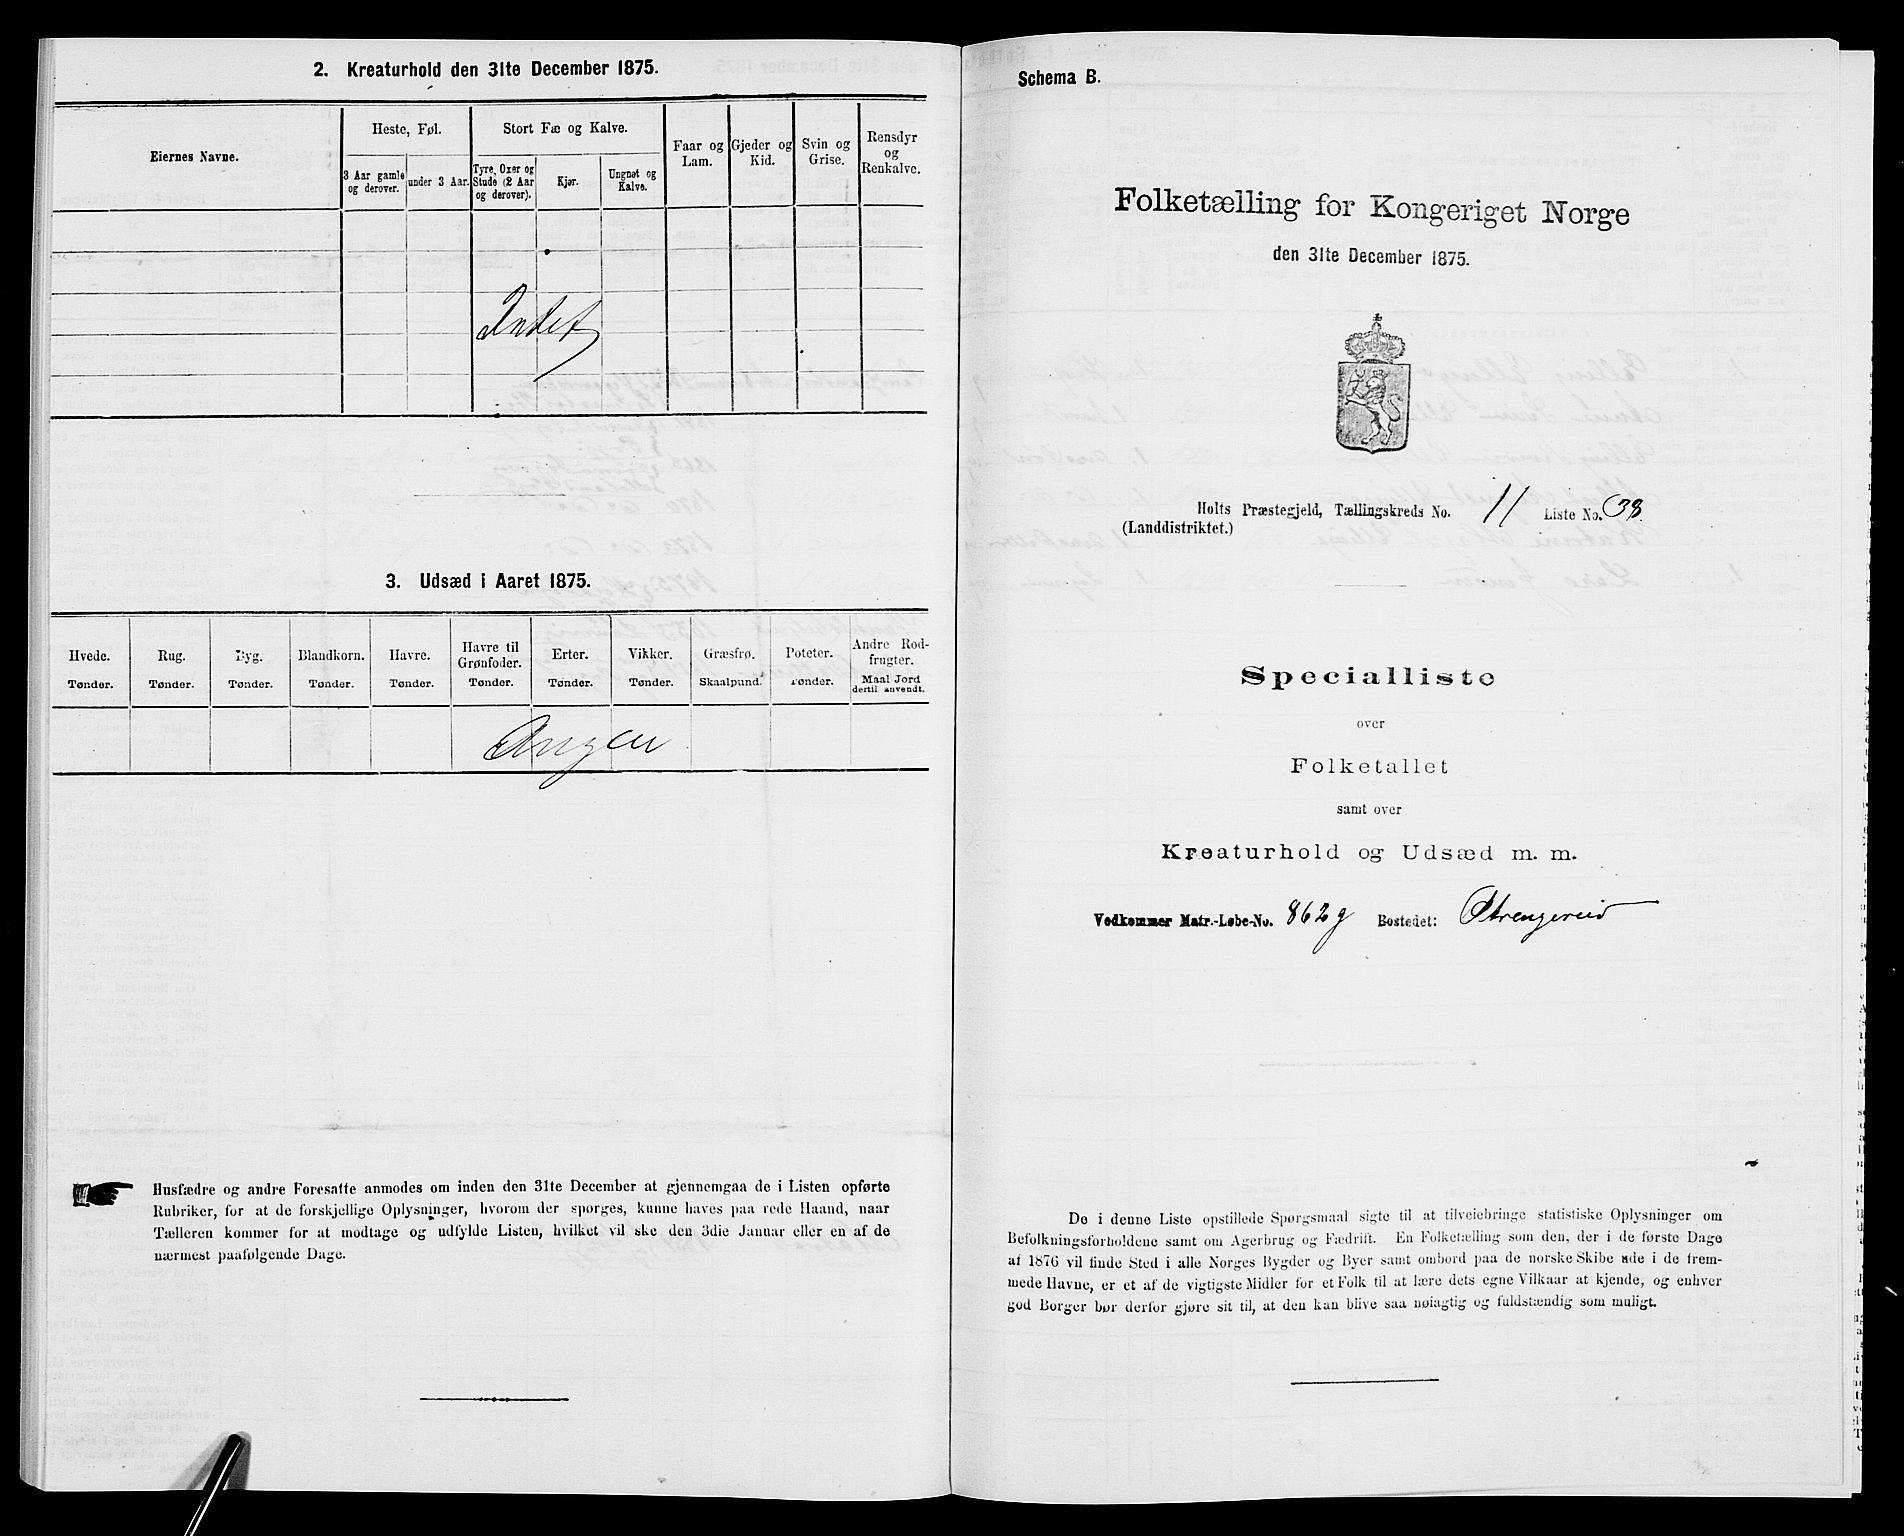 2. Kreaturhold den 31te December 1875.
Eiernes Navne.
Heste, Føl.
Stort Fæ og Kalve.
Faar og Lam.
Gjeder og Kid.
Svin og Grise.
Rensdyr og Renkalve.
3 Aar gamle og derover.
under 3 Aar.
Tyre, Oxer og Stude (2 Aar og derover).
Kjør.
Ungnøt og Kalve.
Intet
3. Udsæd i Aaret 1875.
Hvede. Rug. Byg. Blandkorn. Havre. Havre til Grønfoder. Erter. Vikker. Græsfrø. Poteter. Andre Rodfrugter.
Tønder. Tønder. Tønder. Tønder. Tønder. Tønder. Tønder. Tønder. Skaalpund. Tønder. Maal Jord dertil anvendt.
Ingen
Husfædre og andre Foresatte anmodes om inden den 31te December at gjennemgaa de i Listen opførte
Rubriker, for at de forskjellige Oplysninger, hvorom der spørges, kunne haves paa rede Haand, naar
Tælleren kommer for at modtage og udfylde Listen, hvilket vil ske den 3die Januar eller en af de
nærmest paafølgende Dage.
Schema B.
Folketælling for Kongeriget Norge
den 31te December 1875.
Holts Præstegjeld, Tællingskreds No. 11 Liste No. 38.
(Landdistriktet.)
Specialliste
over
Folketallet
samt over
Kreaturhold og Udsæd m. m.
Vedkommer Matr.-Løbe-No. 862g Bostedet: Strengereid
De i denne Liste opstillede Spørgsmaal sigte til at tilveiebringe statistiske Oplysninger om
Befolkningsforholdene samt om Agerbrug og Fædrift. En Folketælling som den, der i de første Dage
af 1876 vil finde Sted i alle Norges Bygder og Byer samt ombord paa de norske Skibe ude i de frem-
mede Havne, er et af de vigtigste Midler for et Folk til at lære dets egne Vilkaar at kjende, og enhver
god Borger bør derfor gjøre sit til, at den kan blive saa nøiagtig og fuldstændig som muligt.